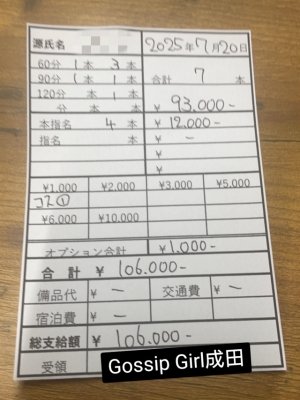 源氏名 2025年7月20日
60分 1本 3本
90分 1本 1本 合計 7 本
120分 本 1本
分 本 本 ¥ 93,000-
本指名 4 本 ¥ 12,000-
指名 本 ¥ -
¥
¥
¥1,000 ¥2,000 ¥3,000 ¥5,000
コス①
¥6,000 ¥10,000
オプション合計 ¥1,000-
合計 ¥ 106,000-
備品代 ¥ - 交通費 ¥ -
宿泊費 ¥ -
総支給額 ¥ 106,000-
受領
Gossip Girl成田